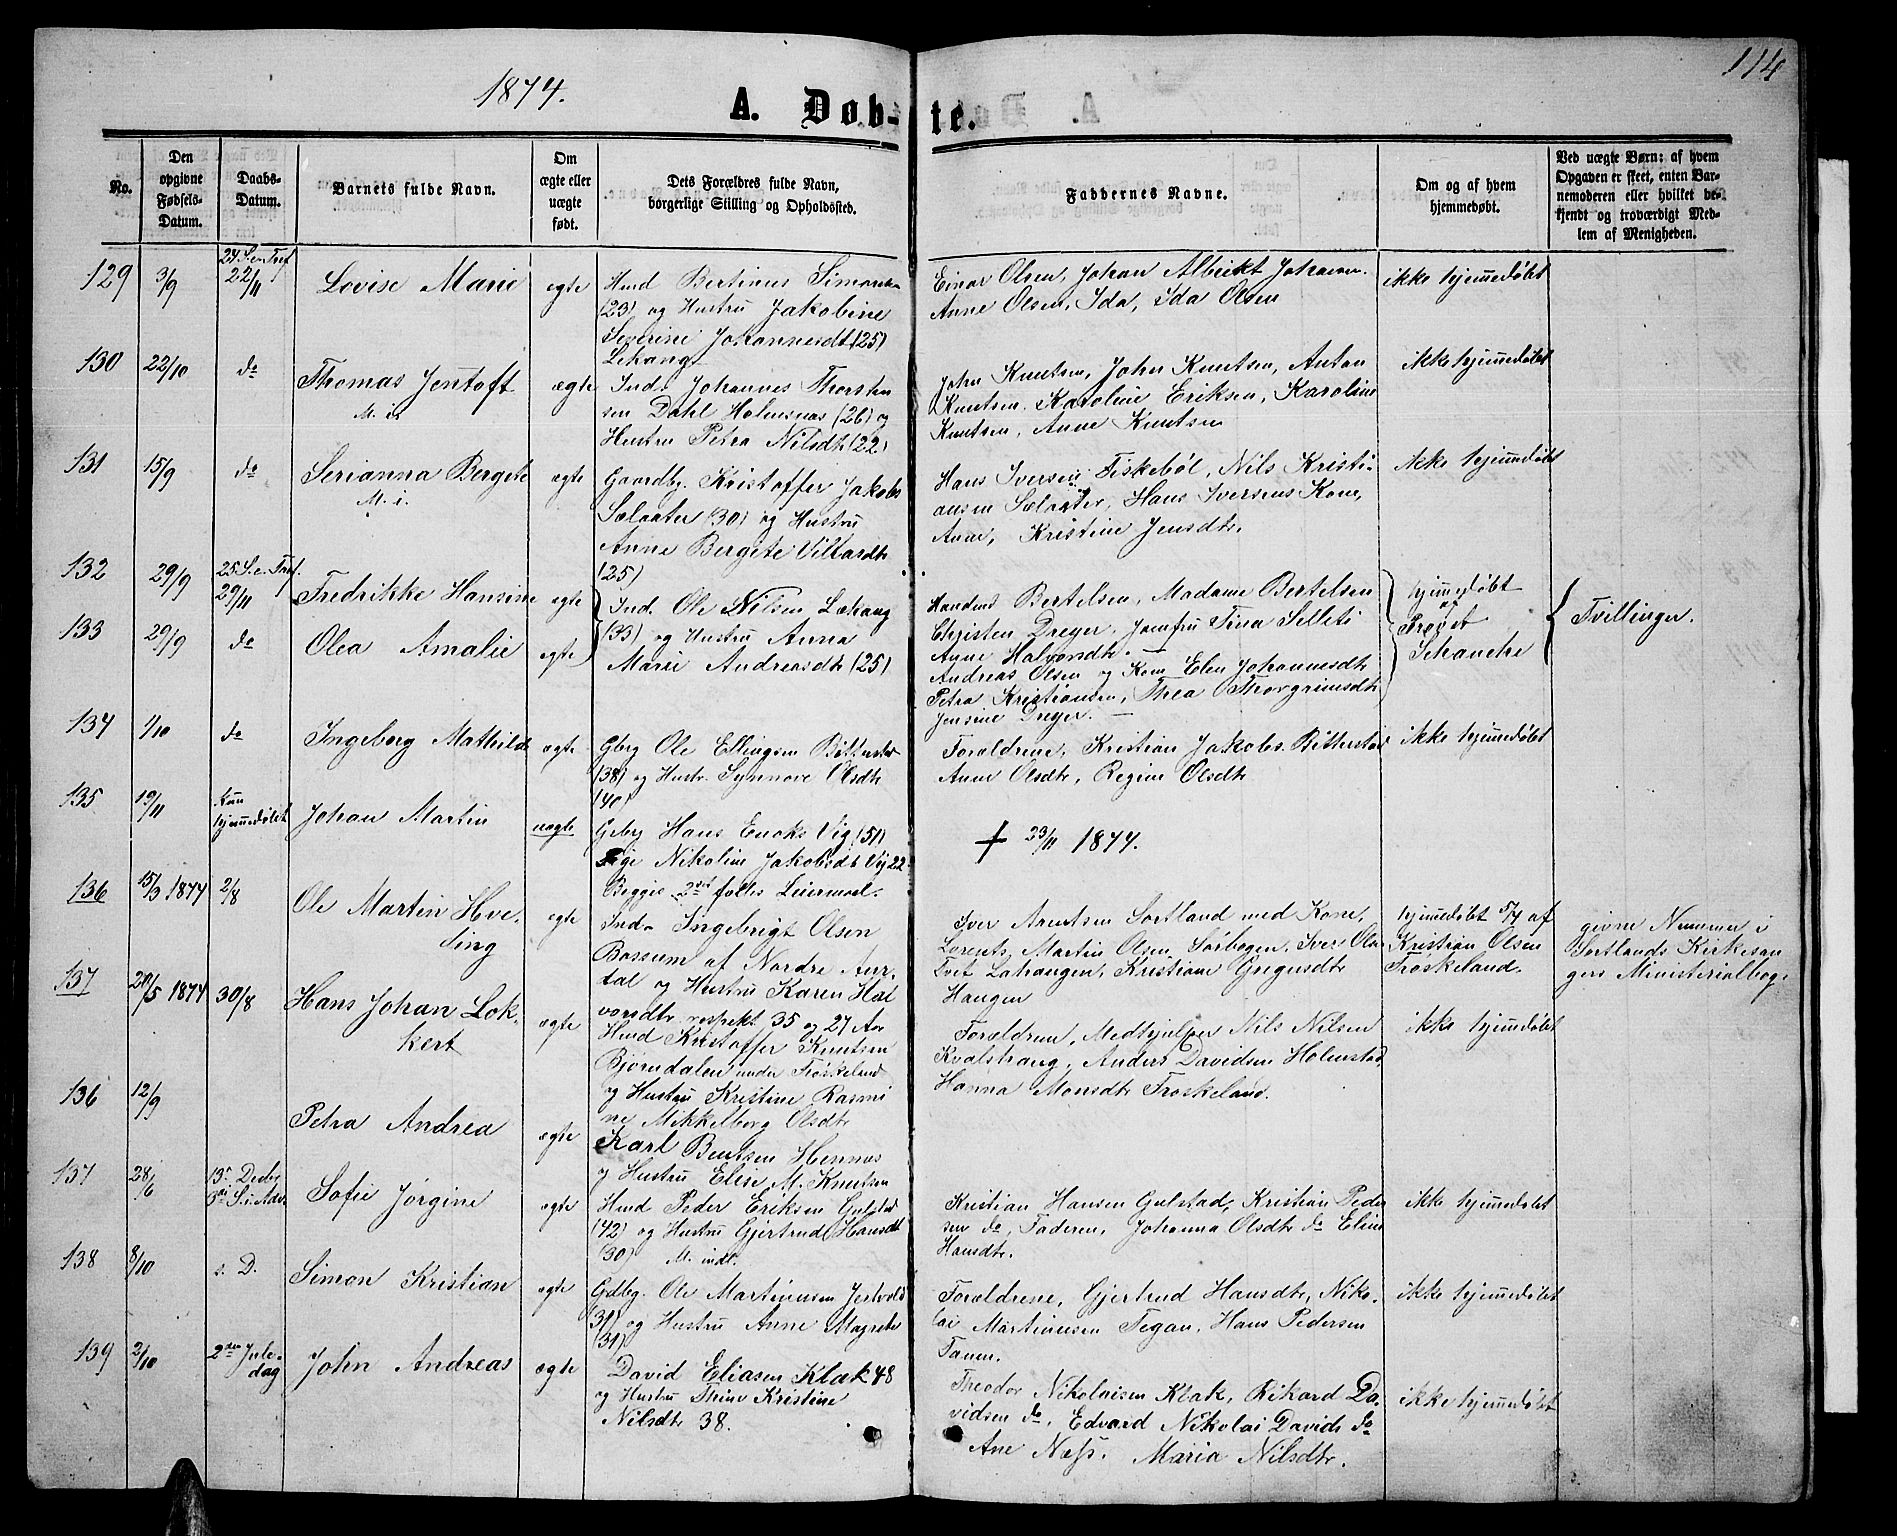 114
1874.
A. Døb-te.
No.
Den opgivne Fødsels-Datum.
Daabs-Datum.
Barnets fulde Navn.
Om ægte eller uægte født.
Dets Forældres fulde Navn, borgerlige Stilling og Opholdssted.
Faddernes Navne.
Om og af hvem hjemmedøbt.
Ved uægte Børn: af hvem Opgaven er skeet, enten Barnemoderen eller hvilket bekjendt og troværdigt Medlem af Menigheden.
129 3/9 24. S. e. Tref. 22/11 Lovise Marie egte
Hmd Bertinus Simons-
(23) og Hustru Jakobine
Severine Johannesdt (25)
Lekang
Einar Olsen, Johan Albrikt Johansen.
Anne Olsen, Ida, Ida Olsen
ikke hjemmedøbt
130 22/10 do Thomas Jentoft ægte
M. i.
Ind. Johannes Thorsten
sen Dahl Holmsnæs (26) og
Hustru Petra Nilsdtr (22)
John Knutsen, John Knutsen, Anton
Knutsen, Karoline Eriksen, Karoline
Knutsen, Anne Knutsen
ikke hjemmedøbt
131 15/9 do Serianna Bergete egte
M. i.
Gaardbr. Kristoffer Jakobs
Selaater (30) og Hustru
Anne Bergete Villardtr
(25)
Hans Iversen Fiskebøl, Nils Kristi-
ansen Selaater, Hans Iversens Kone,
Anne, Kristine Jensdtr.
ikke hjemmedøbt
132 29/9 25. S. e. Tref. 29/11 Fredrikke Hansine egte
133 29/9 do Olea Amalie egte
Ind. Ole Nilsen Lekang
(33) og Hustru Anna
Marie Andreasdtr (25)
Handlsm Bertelsen, Madame Bertelsen
Christen Dreyer, Jomfru Tina Selleti
Anne Halvorsdtr. —
Andreas Olsen og Kone Elen Johannesdtr
Petra Kristiansen, Thea Thorgrimsdtr
Jensine Dreyer. —
hjemmedøbt
af
Provst
Schanche
Tvillinger.
134 1/10 do Ingeborg Mathilde egte
Gbrg Ole Ellingsen Bitterstad
(38) og Hustr. Synnøve Olsdtr
(40)
Forældrene, Kristian Jakobs. Bitterstad
Anne Olsdtr, Regine Olsdtr
ikke hjemmedøbt
135 19/11 Kun hjemmedøbt Johan Martin uægte
Gbrg Hans Enoks Vig (51)
Pige Nikoline Jakobsdt Vig 22
Begges 2det fælles Leiermaal.
† 23/11 1874.
136 15/3 1874 2/8 Ole Martin Hve-
ding egte
Ind. Ingebrigt Olsen
Bossum af Nordre Aur-
dal og Hustru Karen Hal
vorsdtr respekt. 35 og 27 Aar
Iver Arntsen Sortland med Kone,
Lorents Martin Olsen Sørbogen, Iver Olsen
Tvet Lahaugen, Kristiane Gregusdtr
Haugen
hjemmedøbt 5/4 af
Kristian Olsen
Frøskeland.
givne Nummer i
Sortlands Kirkesan
gers Ministerialbog.
137 20/5 1874 30/8 Hans Johan Lok-
kert ægte
Hmd Kristoffer Knutsen
Bjørndalen under Frøskeland
og Hustru Kristine Rasmi
ne Mikkelborg Olsdtr
Forældrene, Medhjælper Nils Nilsen
Kvalstraug, Anders Davidsen Holmstad,
Hanna Monsdtr Frøskeland.
ikke hjemmedøbt
136 12/9 Petra Andrea ægte
Karl Bentsen Hennes
og Hustru Elise M. Knutsen
137 28/6 13. Decbr 3die S. i Adv. Sofie Jørgine egte
Hmd Peder Eriksen Gulstad
(42) og Hustru Gjertrud Hansdt
(30) M. indt.
Kristian Hansen Gulstad, Kristian Peder
sen do, Faderen, Johanna Olsdtr do Eline
Hansdtr.
ikke hjemmedøbt
138 8/10 s. D. Simon Kristian egte
Gdbg. Ole Martinusen Jestvold
(31) og Hustru Anne Magrete
(31)
Forældrene, Gjertrud Hansdtr, Niko-
lai Martinusen Tegan, Hans Pedersen
Fanen.
ikke hjemmedøbt
139 2/10 2den Jule-
dag John Andreas ægte
David Eliasen Klak 48
og Hustru Trine Kristine
Nilsdtr 38.
Theodor Nikolaisen Klak, Rikard Da-
vidsen do, Edvard Nikolai Davids do
Ane Næss. Maria Nilsdtr.
ikke hjemmedøbt